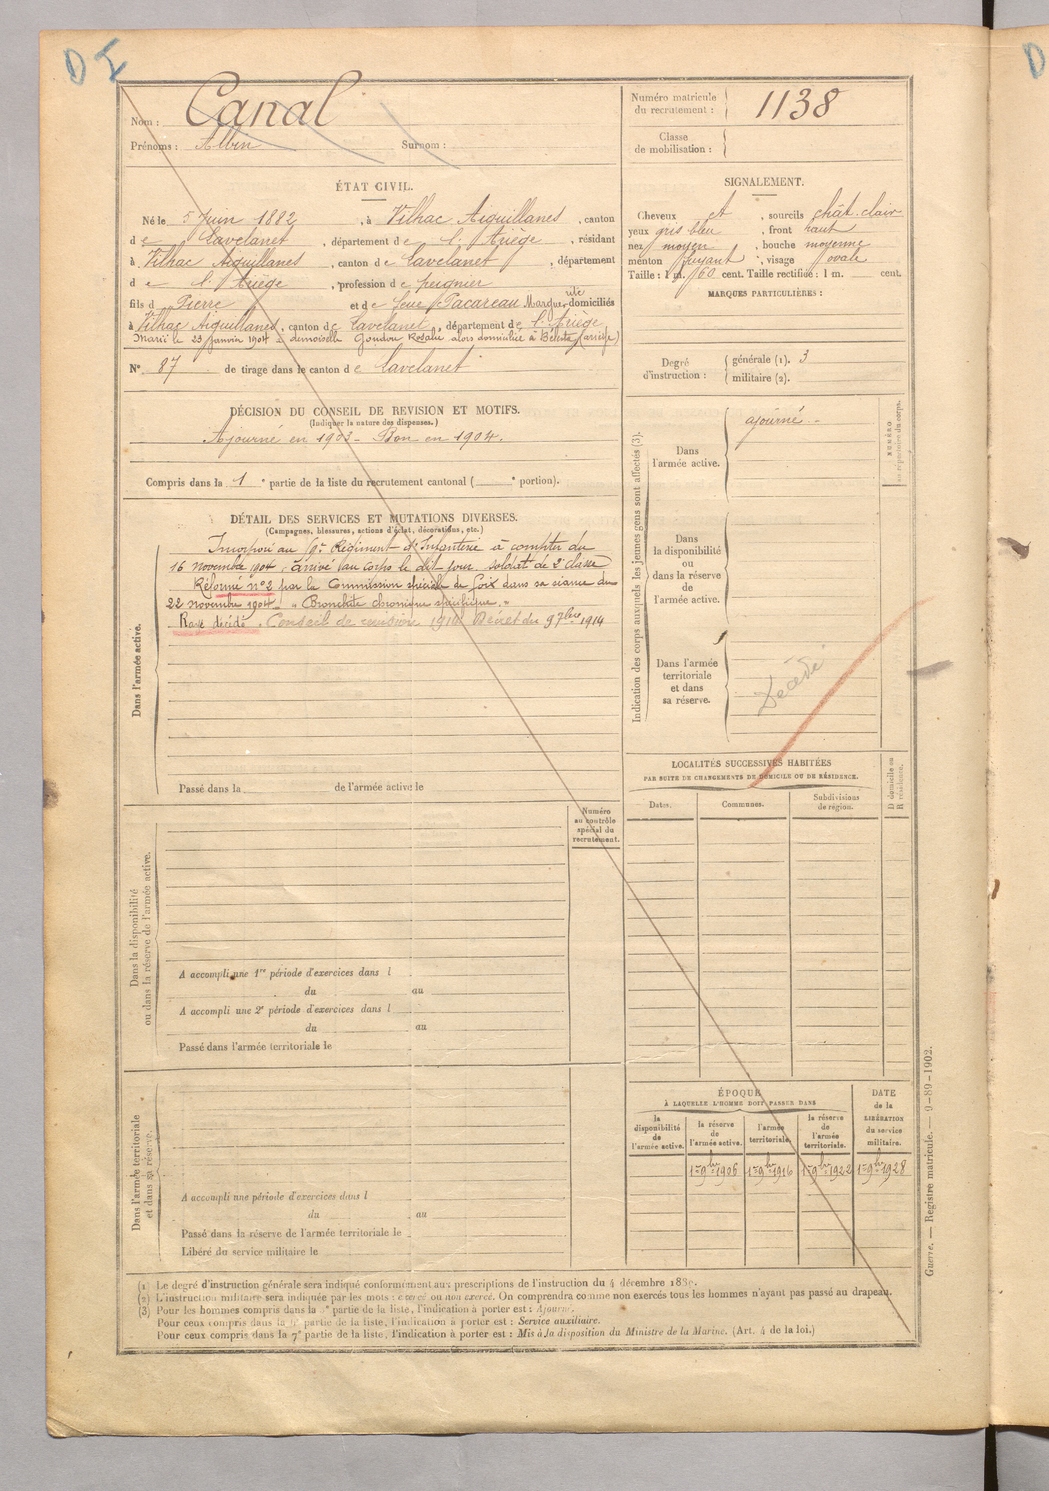 D I
Nom : Canal
Prénoms : Albin Surnom :
Numéro matricule du recrutement : 1138
Classe de mobilisation :
ÉTAT CIVIL.
Né le 5 Juin 1882, à Vilhac Aiguillanes, canton
de Lavelanet, département de l'Ariège, résidant
à Vilhac Aiguillanes, canton de Lavelanet, département
de l'Ariège, profession de peignier
fils de Pierre et de feue Pacareau Marguerite domiciliés
à Vilhac Aiguillanes, canton de Lavelanet, département de l'Ariège
Marié le 23 Janvier 1904 à demoiselle Goudou Rosalie alors domiciliée à Bélesta (Ariège)
N° 87 de tirage dans le canton de Lavelanet
SIGNALEMENT.
Cheveux et, sourcils chât. clair
yeux gris bleu, front haut
nez moyen, bouche moyenne
menton fuyant, visage ovale
Taille : 1 m. 60 cent. Taille rectifiée : 1 m. cent.
MARQUES PARTICULIÈRES :
Degré d'instruction : générale (1). 3
militaire (2).
DÉCISION DU CONSEIL DE REVISION ET MOTIFS.
(Indiquer la nature des dispenses.)
Ajourné en 1903 - Bon en 1904.
Compris dans la 1e partie de la liste du recrutement cantonal ( e portion).
DÉTAIL DES SERVICES ET MUTATIONS DIVERSES.
(Campagnes, blessures, actions d'éclat, décorations, etc.)
Dans l'armée active.
Incorporé au Régiment d'Infanterie à compter du
16 novembre 1904, arrivé au corps le dit jour soldat de 2e classe
Réformé n°2 par la Commission spéciale de Foix dans sa séance du
22 novembre 1904. " Bronchite chronique spécifique. "
Rayé décédé. Conseil de revision 1914 Décret du 9 7bre 1914
Passé dans la de l'armée active le
Indication des corps auxquels les jeunes gens sont affectés (3).
Dans l'armée active. ajourné
NUMÉRO au répertoire du corps.
Dans la disponibilité ou dans la réserve de l'armée active.
Dans l'armée territoriale et dans sa réserve. Décédé
LOCALITÉS SUCCESSIVES HABITÉES
PAR SUITE DE CHANGEMENTS DE DOMICILE OU DE RÉSIDENCE.
Dates. Communes. Subdivisions de région. D domicile ou R résidence.
Dans la disponibilité ou dans la réserve de l'armée active.
Numéro au contrôle spécial du recrutement.
A accompli une 1re période d'exercices dans l
du au
A accompli une 2e période d'exercices dans l
du au
Passé dans l'armée territoriale le
Dans l'armée territoriale et dans sa réserve.
A accompli une période d'exercices dans l
du au
Passé dans la réserve de l'armée territoriale le
Libéré du service militaire le
ÉPOQUE
À LAQUELLE L'HOMME DOIT PASSER DANS
la disponibilité de l'armée active. la réserve de l'armée active. l'armée territoriale. la réserve de l'armée territoriale. DATE de la LIBÉRATION du service militaire.
1er 9bre 1906 1er 9bre 1916 1er 9bre 1922 1er 9bre 1928
(1) Le degré d'instruction générale sera indiqué conformément aux prescriptions de l'instruction du 4 décembre
(2) L'instruction militaire sera indiquée par les mots : exercé ou non exercé. On comprendra comme non exercés tous les hommes n'ayant pas passé au drapeau.
(3) Pour les hommes compris dans la partie de la liste, l'indication à porter est : Ajourné.
Pour ceux compris dans la partie de la liste, l'indication à porter est : Service auxiliaire.
Pour ceux compris dans la 7e partie de la liste, l'indication à porter est : Mis à la disposition du Ministre de la Marine. (Art. 4 de la loi.)
Guerre. — Registre matricule. — 9-89-1902.
D